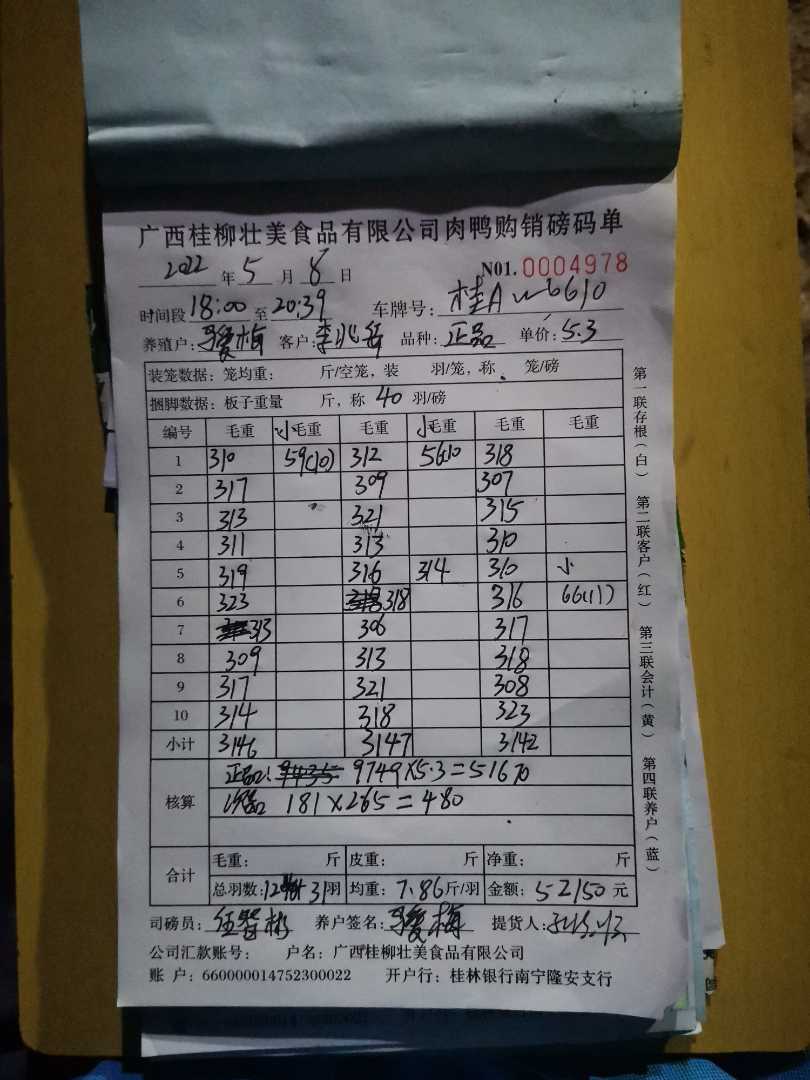 广西桂柳壮美食品有限公司肉鸭购销磅码单
2022 年 5 月 8 日 N01. 0004978
时间段 18:00 至 20:39 车牌号: 桂A
养殖户: 梅 客户: 李兆岳 品种: 正品 单价: 5.3
装笼数据: 笼均重: 斤/空笼, 装 羽/笼, 称 笼/磅
捆脚数据: 板子重量 斤, 称 40 羽/磅
编号 毛重 小毛重 毛重 小毛重 毛重 毛重
1 310 59(10) 312 56(10 318
2 317 309 307
3 313 321 315
4 311 313 310
5 319 316 314 310 小
6 323 318 316 66(11)
7 313 306 317
8 309 313 318
9 317 321 308
10 314 318 323
小计 3146 3147 3142
核算 正品: 9749×5.3=51670
次品 181×265=480
合计 毛重: 斤 皮重: 斤 净重: 斤
总羽数: 12 31羽 均重: 7.86斤/羽 金额: 52150 元
司磅员: 伍智彬 养户签名: 梅 提货人:
公司汇款账号: 户名: 广西桂柳壮美食品有限公司
账 户: 660000014752300022 开户行: 桂林银行南宁隆安支行
第一联存根(白) 第二联客户(红) 第三联会计(黄) 第四联养户(蓝)